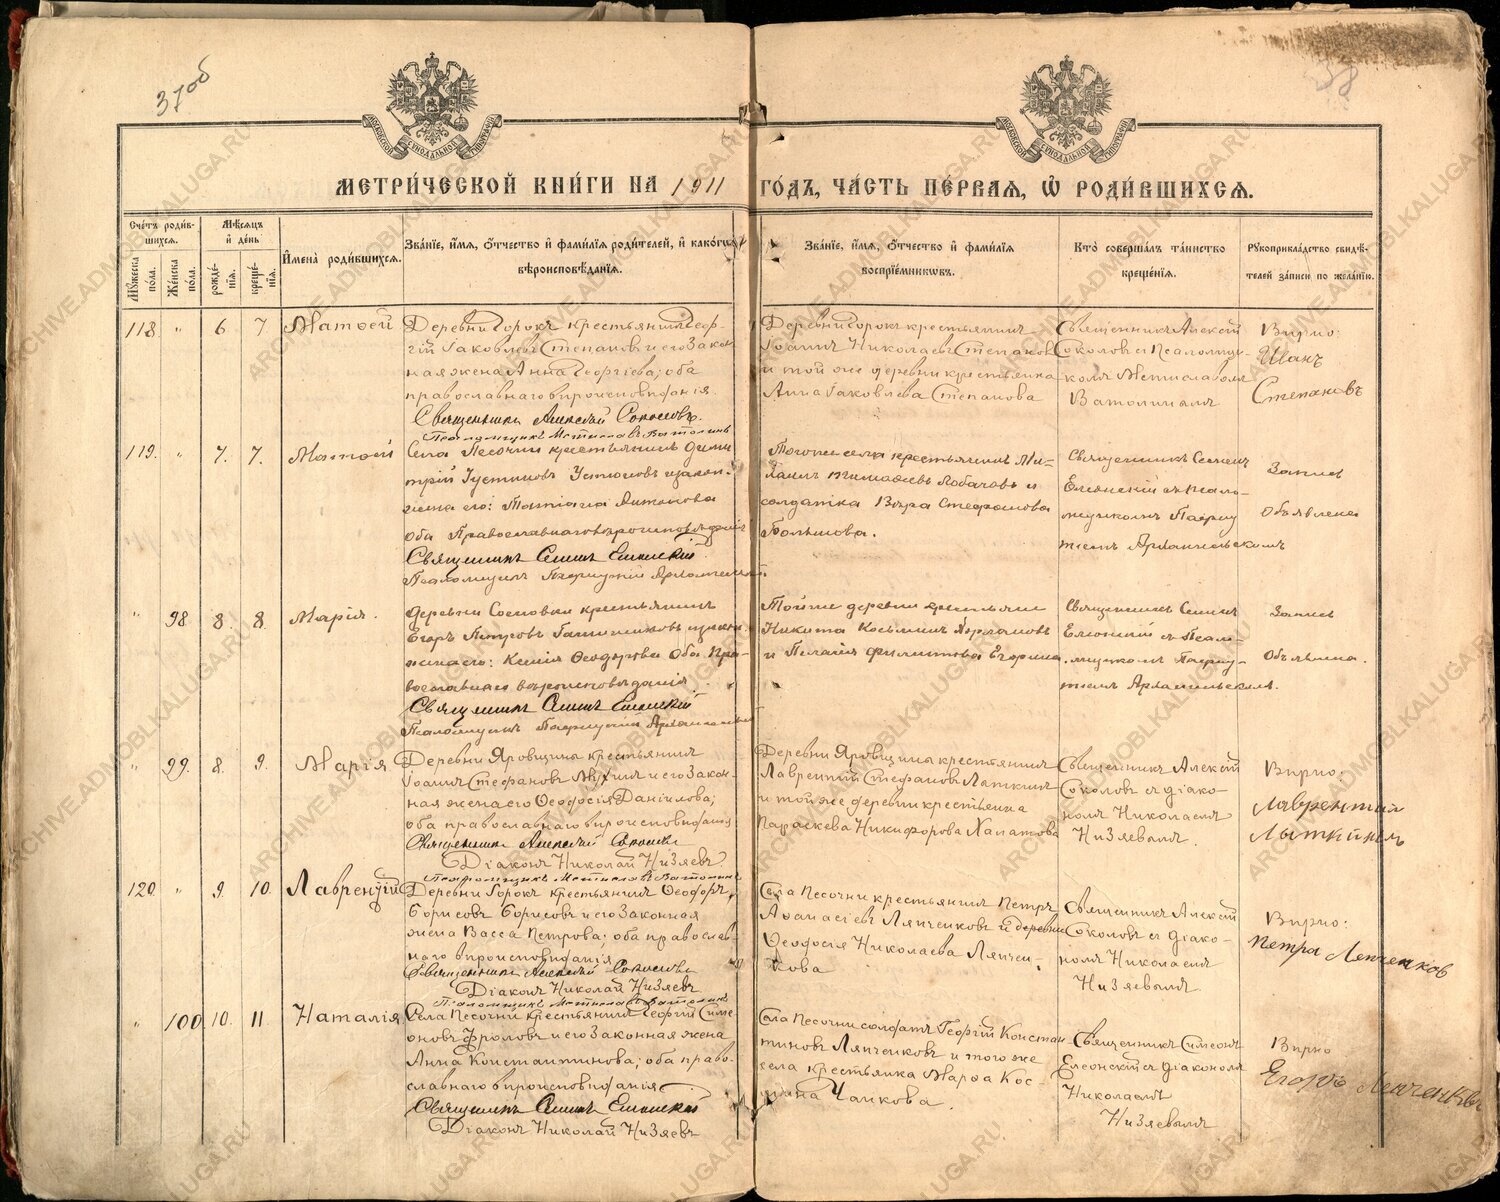 37об
38
МОСКОВСКОЙ СѴНОДАЛЬНОЙ ТИПОГРАФІИ
МОСКОВСКОЙ СѴНОДАЛЬНОЙ ТИПОГРАФІИ
МЕТРИ́ЧЕСКОЙ КНИ́ГИ НА 1911 ГО́ДЪ, ЧА́СТЬ ПЕ́РВАЯ, Ѡ҆ РОДИ́ВШИХСЯ.
Сче́тъ роди́в-
шихся.
Мꙋ́жеска по́ла.
Же́нска по́ла.
Мѣ́сяцъ
и҆ де́нь
рожде́-
нїя.
креще́-
нїя.
И҆мена̀ роди́вшихся.
Зва́нїе, и҆́мя, ѻ҆́тчество и҆ фами́лїя роди́телей, и҆ како́гѡ
вѣроисповѣ́данїя.
Зва́нїе, и҆́мя, ѻ҆́тчество и҆ фами́лїя
воспрїе́мникѡвъ.
Кто̀ соверша́лъ та́инство
креще́нїя.
Рꙋкоприкла́дство свидѣ́-
телей за́писи по жела́нїю.
118 " 6 7 Матѳей
Деревни Горокъ крестьянинъ Геор-
гій Іаковлевъ Степановъ и его закон
ная жена Анна Георгіева; оба
православнаго вѣроисповѣданія.
Священникъ Алексѣй Соколовъ.
Псаломщикъ Мстиславъ Ватолинъ
Деревни Горокъ крестьянинъ
Іоаннъ Николаевъ Степановъ
и той же деревни крестьянка
Анна Іаковлева Степанова
Священникъ Алексѣй
Соколовъ съ псаломщи-
комъ Мстиславомъ
Ватолинымъ
Вѣрно:
Иванъ
Степановъ
119. " 7. 7. Матѳей
Села Песочни крестьянинъ Дими
трій Іустиновъ Устиновъ и закон.
жена его: Татіана Антонова
оба Православнаго вѣроисповѣданія
Священникъ Симеонъ Елеонскій.
Псаломщикъ Пафнутій Архангельскій
Того же села крестьянинъ Ми-
хаилъ Лобачовъ и
солдатка Вѣра Стефанова
Большова.
Священникъ Симеонъ
Елеонскій съ псало-
мщикомъ Пафну
тіемъ Архангельскимъ
Запись
Объявлена
" 98 8. 8. Марія.
Деревни Сосновки крестьянинъ
Егоръ Петровъ и закон.
жена его: Ксенія Ѳеодорова Оба Пра-
вославнаго вѣроисповѣданія
Священникъ Симеонъ Елеонскій
Псаломщикъ Пафнутій Архангельскій
Той же деревни крестьяне
Никита Косьминъ Варламовъ
и Пелагія Филиппова Егорина.
Священникъ Симеонъ
Елеонскій съ Псало-
мщикомъ Пафну-
тіемъ Архангельскимъ.
Запись
Объявлена.
" 99. 8. 9. Марія
Деревни Яровщина крестьянинъ
Іоаннъ Стефановъ и его закон-
ная жена его Ѳеодосія Даніилова;
оба православнаго вѣроисповѣданія
Священникъ Алексѣй Соколовъ
Діаконъ Николай Низяевъ.
Псаломщикъ Мстиславъ Ватолинъ
Деревни Яровщина крестьянинъ
Лаврентій Стефановъ Латкинъ
и той же деревни крестьянка
Параскева Никифорова Хапатова
Священникъ Алексѣй
Соколовъ съ діако-
номъ Николаемъ
Низяевымъ.
Вѣрно:
Лаврентий
Лыткинъ
120 " 9. 10. Лаврентій
Деревни Горокъ крестьянинъ Ѳеодоръ
Борисовъ Борисовъ и его законная
жена Васса Петрова; оба православ-
наго вѣроисповѣданія
Священникъ Алексѣй Соколовъ
Діаконъ Николай Низяевъ
Псаломщикъ Мстиславъ Ватолинъ
Села Песочни крестьянинъ Петръ
Аѳанасіевъ Ляпченковъ и деревни
Ѳеодосія Николаева Ляпчен-
кова
Священникъ Алексѣй
Соколовъ съ діако-
номъ Николаемъ
Низяевымъ
Вѣрно:
Петра Лепченков
" 100 10. 11. Наталія
Села Песочни крестьянинъ Георгій Симе
оновъ Фроловъ и его законная жена
Анна Константинова; оба право-
славнаго вѣроисповѣданія
Священникъ Симеонъ Елеонскій
Діаконъ Николай Низяевъ
Села Песочни солдатъ Георгій Констан
тиновъ Ляпченковъ и того же
села крестьянка Марѳа Кос-
мина Чаикова.
Священникъ Симеонъ
Елеонскій съ діакономъ
Николаемъ
Низяевымъ
Вѣрно
Егоръ Лепченковъ
ARCHIVE.ADMOBLKALUGA.RU